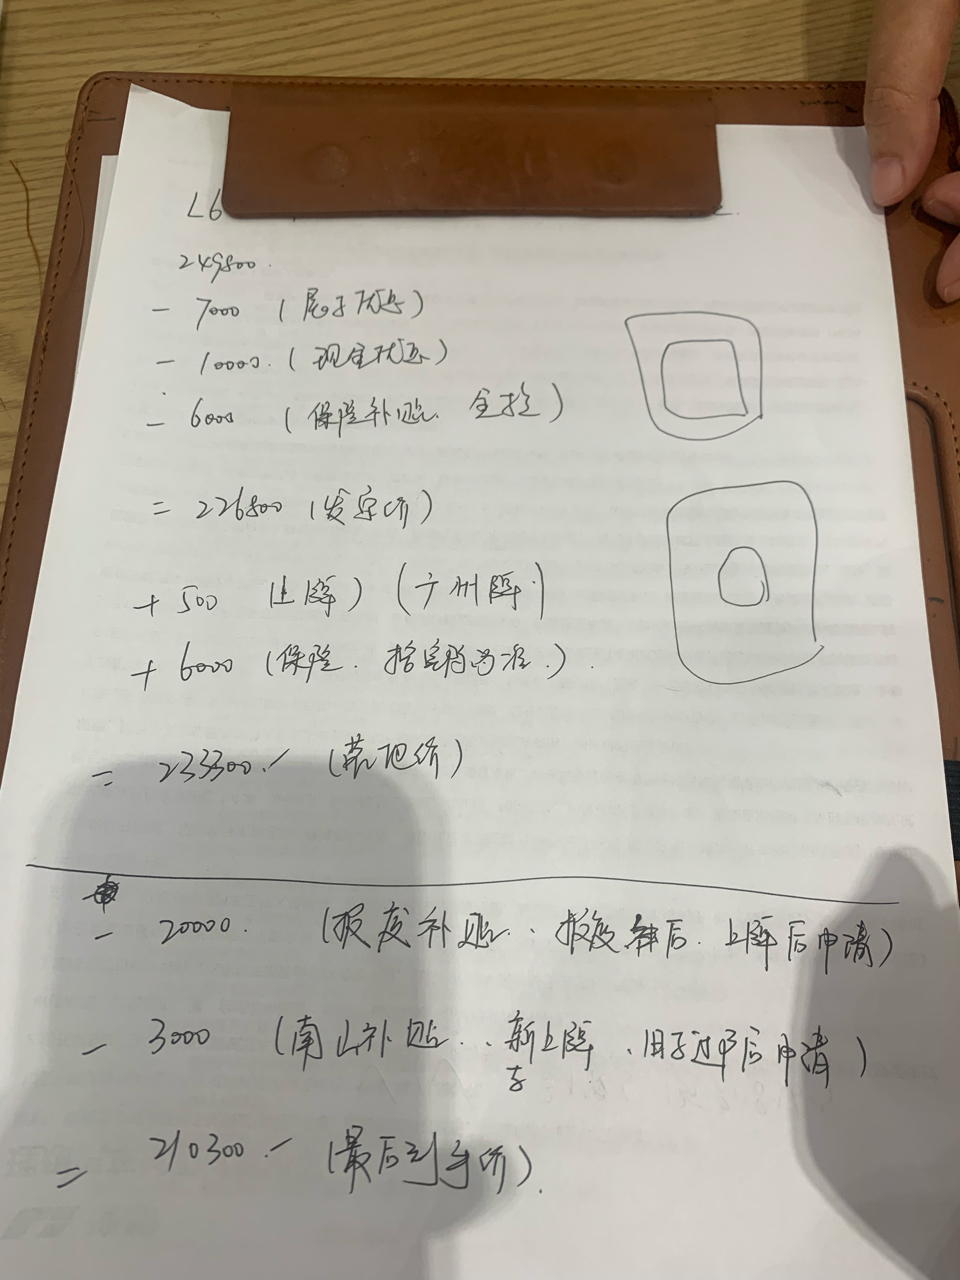 L6
249800.
- 7000 (尾子优惠)
- 10000. (现金优惠)
- 6000 (保险补贴. 全托)
= 226800 (发定价)
+ 500 (上牌) (广州牌)
+ 6000 (保险. 指定档为准.).
= 233300.- (落地价)
- 20000. (报废补贴. 报废车后. 上牌后申请)
- 3000 (南山补贴. 新车上牌. 旧车过户后申请)
= 210300.- (最后到手价).